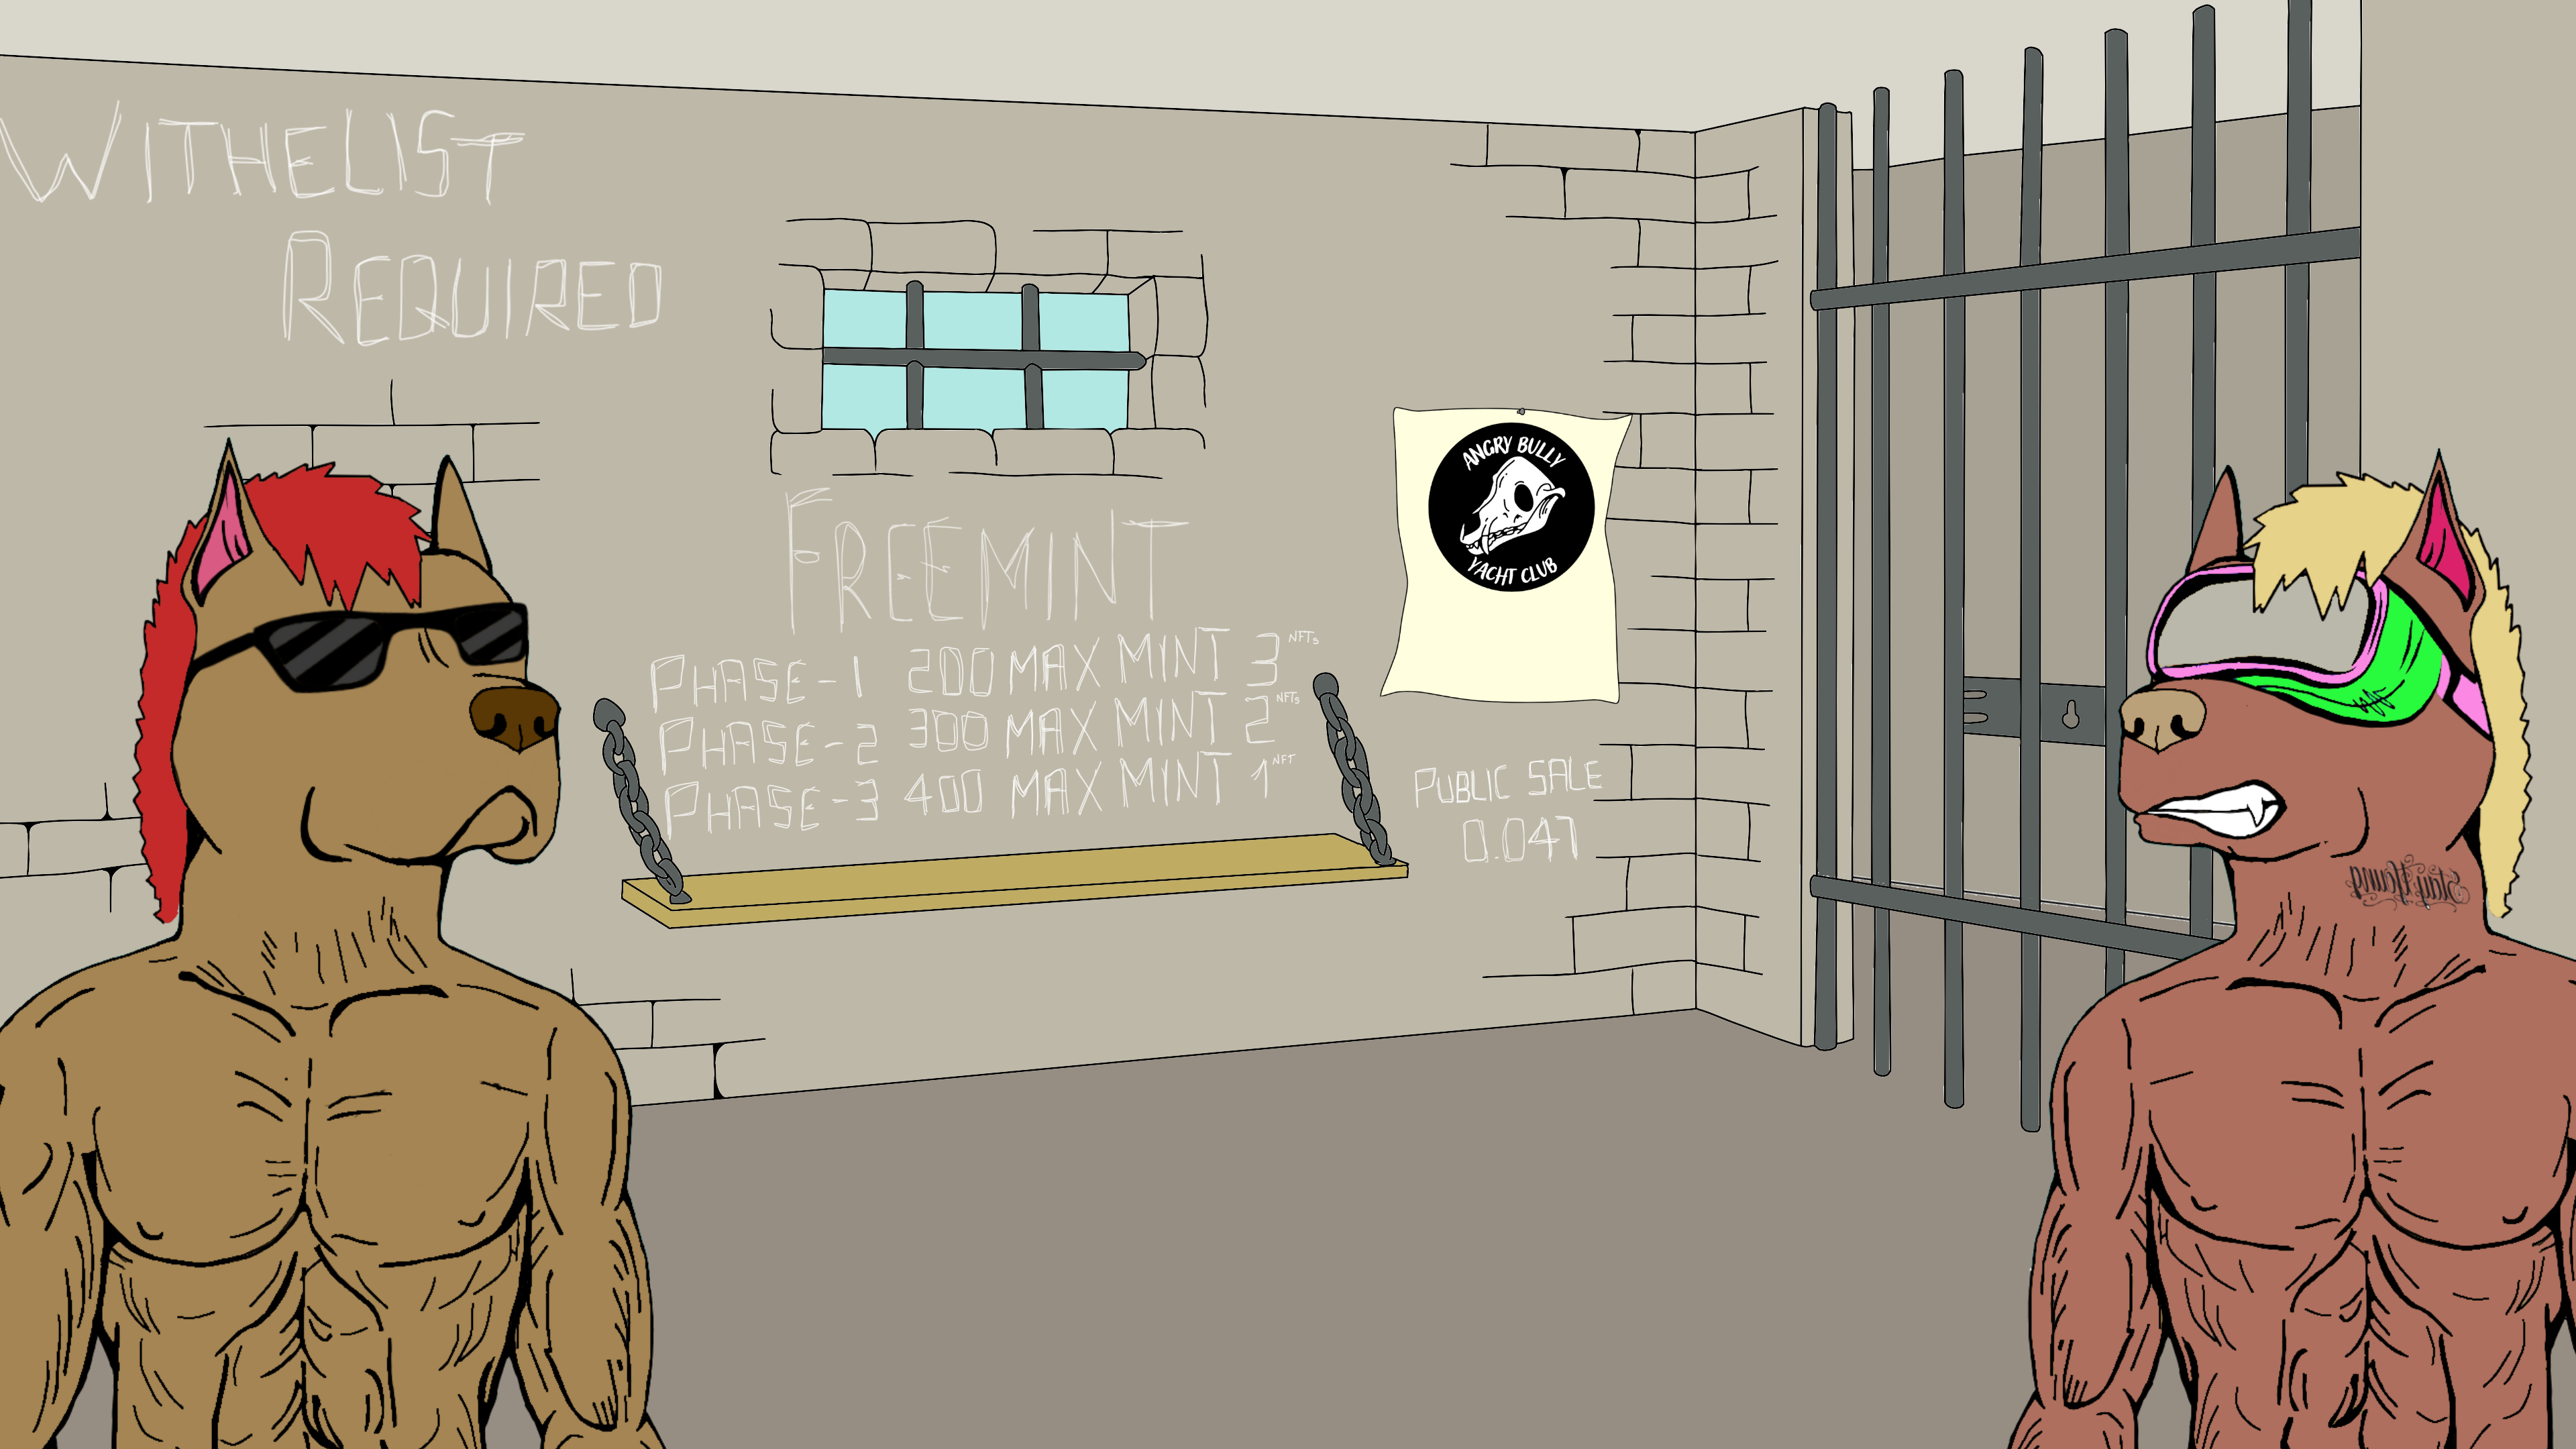 WITHELIST
REQUIRED
FREEMINT
PHASE-1 200 MAX MINT 3 NFTs
PHASE-2 300 MAX MINT 2 NFTs
PHASE-3 400 MAX MINT 1 NFT
ANGRY BULLY
YACHT CLUB
PUBLIC SALE
0.047
Stay Young